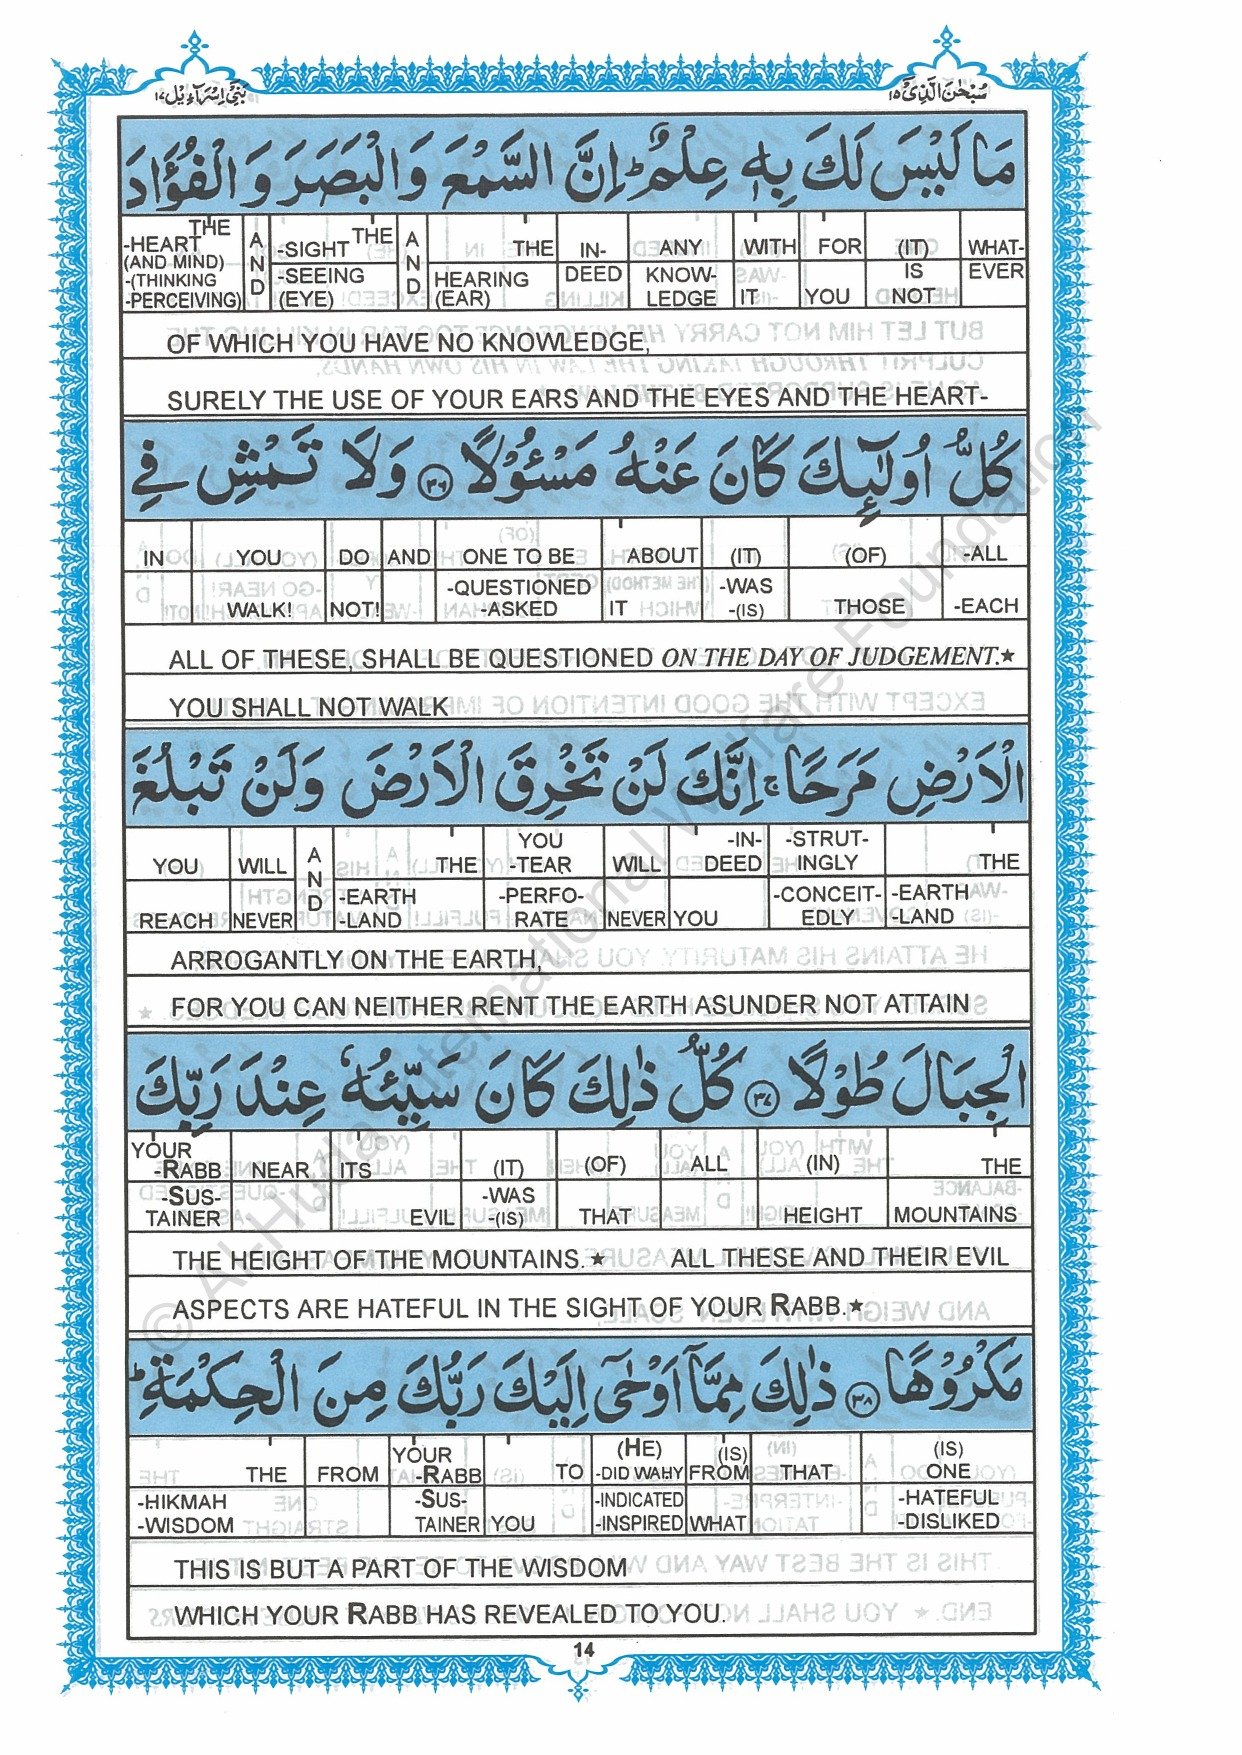 بَنِیْٓ اِسْرَآءِیْل ١٧ سُبْحٰنَ الَّذِیْٓ ١٥
مَا لَیْسَ لَكَ بِهٖ عِلْمٌ ؕ اِنَّ السَّمْعَ وَالْبَصَرَ وَالْفُؤَادَ
THE -HEART (AND MIND) -(THINKING -PERCEIVING) | AND | THE -SIGHT -SEEING (EYE) | AND | THE HEARING (EAR) | IN-DEED | ANY KNOW-LEDGE | WITH IT | FOR YOU | (IT) IS NOT | WHAT-EVER
OF WHICH YOU HAVE NO KNOWLEDGE,
SURELY THE USE OF YOUR EARS AND THE EYES AND THE HEART-
كُلُّ اُولٰٓئِكَ كَانَ عَنْهُ مَسْـُٔوْلًا ٣٦ وَلَا تَمْشِ فِی
IN | YOU WALK! | DO NOT! | AND | ONE TO BE -QUESTIONED -ASKED | ABOUT IT | (IT) -WAS -(IS) | (OF) THOSE | -ALL -EACH
ALL OF THESE, SHALL BE QUESTIONED ON THE DAY OF JUDGEMENT.★
YOU SHALL NOT WALK
الْاَرْضِ مَرَحًا ۚ اِنَّكَ لَنْ تَخْرِقَ الْاَرْضَ وَلَنْ تَبْلُغَ
YOU REACH | WILL NEVER | AND | THE -EARTH -LAND | YOU -TEAR -PERFO-RATE | WILL NEVER | -IN-DEED YOU | -STRUT-INGLY -CONCEIT-EDLY | THE -EARTH -LAND
ARROGANTLY ON THE EARTH,
FOR YOU CAN NEITHER RENT THE EARTH ASUNDER NOT ATTAIN
الْجِبَالَ طُوْلًا ٣٧ كُلُّ ذٰلِكَ كَانَ سَیِّئُهٗ عِنْدَ رَبِّكَ
YOUR -RABB -SUS-TAINER | NEAR | ITS EVIL | (IT) -WAS -(IS) | (OF) THAT | ALL | (IN) HEIGHT | THE MOUNTAINS
THE HEIGHT OF THE MOUNTAINS.★ ALL THESE AND THEIR EVIL
ASPECTS ARE HATEFUL IN THE SIGHT OF YOUR RABB.★
مَكْرُوْهًا ٣٨ ذٰلِكَ مِمَّآ اَوْحٰۤی اِلَیْكَ رَبُّكَ مِنَ الْحِكْمَةِ ؕ
THE -HIKMAH -WISDOM | FROM | YOUR -RABB -SUS-TAINER | TO YOU | (HE) -DID WAHY -INDICATED -INSPIRED | (IS) FROM WHAT | THAT | (IS) ONE -HATEFUL -DISLIKED
THIS IS BUT A PART OF THE WISDOM
WHICH YOUR RABB HAS REVEALED TO YOU.
14
© Al-Huda International Welfare Foundation